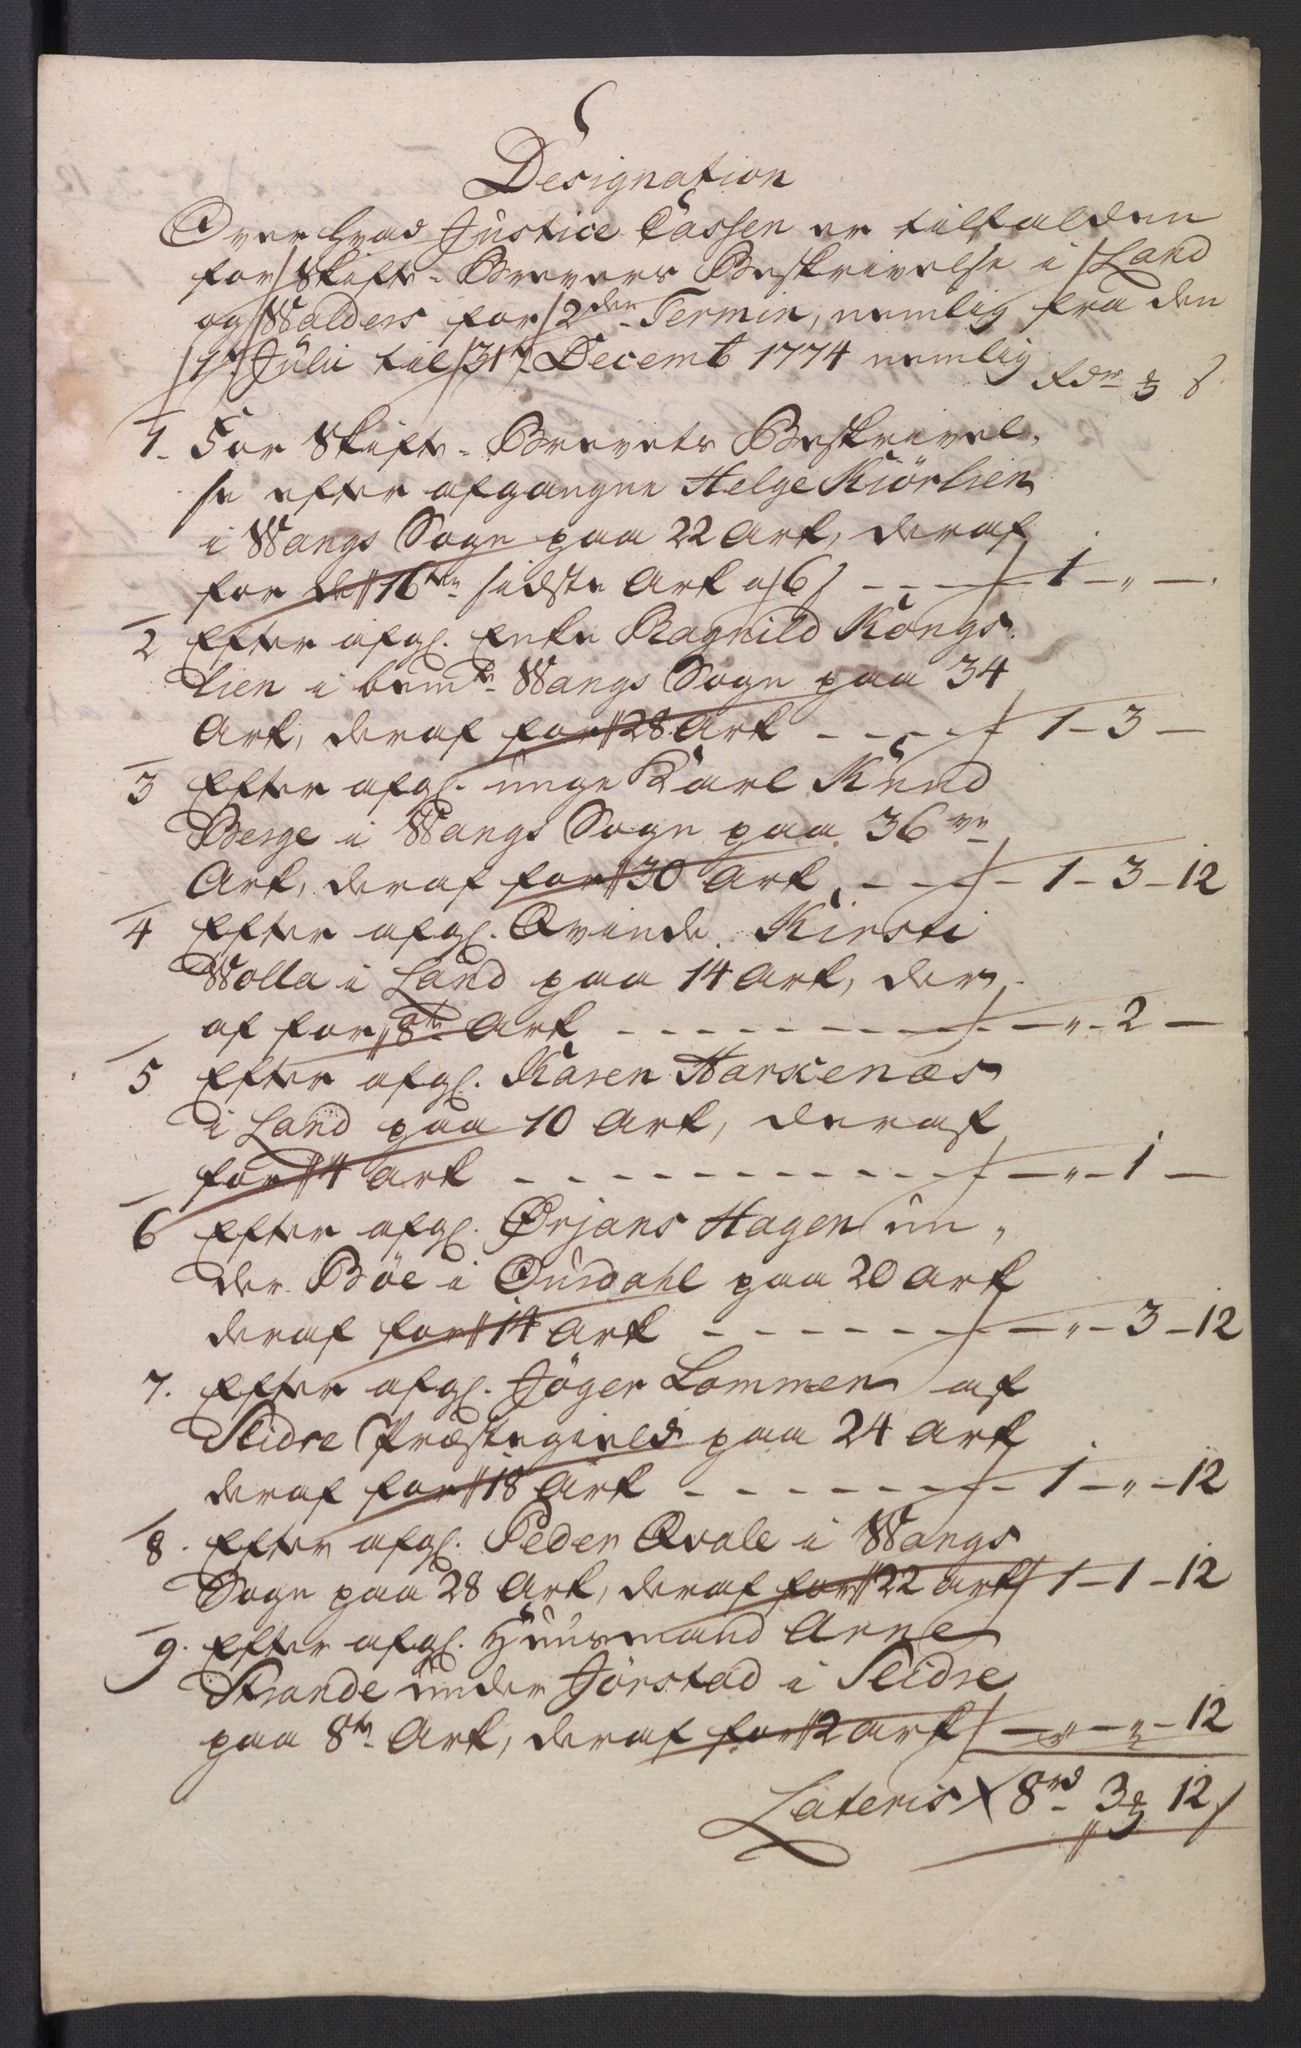 Designation
Over hvad Justice Cassen er tilfalden
for Skifte-Brevers Beskrivelse i Land
og Walders for 2den Termin, nemlig fra den
1te Julii til 31te Decembr 1774 nemlig Rdr ꝑ s
1. For Skifte-Brevets Beskrivel-
se efter afgangne Helge Kiörlien
i Wangs Sogn paa 22 Ark, deraf
for de 16ten sidste Ark a 6 s - - - 1 - „ -
2 Efter afg. Enke Ragnild Kongs-
lien i bemte Wangs Sogn paa 34
Ark, deraf for 28 Ark - - - - 1 - 3 -
3 Efter afg. unge Karl Knud
Berge i Wangs Sogn paa 36ve
Ark, deraf for 30 Ark - - - 1 - 3 - 12
4 Efter afg. Qvinde Kirsti
Wolla i Land paa 14 Ark, der-
af for 8te Ark - - - - - - „ - 2 -
5 Efter afg. Karen Harxenæs
i Land paa 10 Ark, deraf
for 4 Ark - - - - - - „ - 1 -
6 Efter afg. Ørjans Hagen un-
der Böe i Ourdahl paa 20 Ark
deraf for 14 Ark - - - - - „ - 3 - 12
7. Efter afg. Jöger Lommen af
Slidre Præstegield paa 24 Ark
deraf for 18 Ark - - - - - 1 - „ - 12
8. Efter afg. Peder Qvale i Wangs
Sogn paa 28 Ark, deraf for 22 Ark 1 - 1 - 12
9. Efter afg. Huusmand Arne
Strande under Jörstad i Slidre
paa 8te Ark, deraf for 2 Ark - „ - „ - 12
Lateris 8rd 3ꝑ 12s